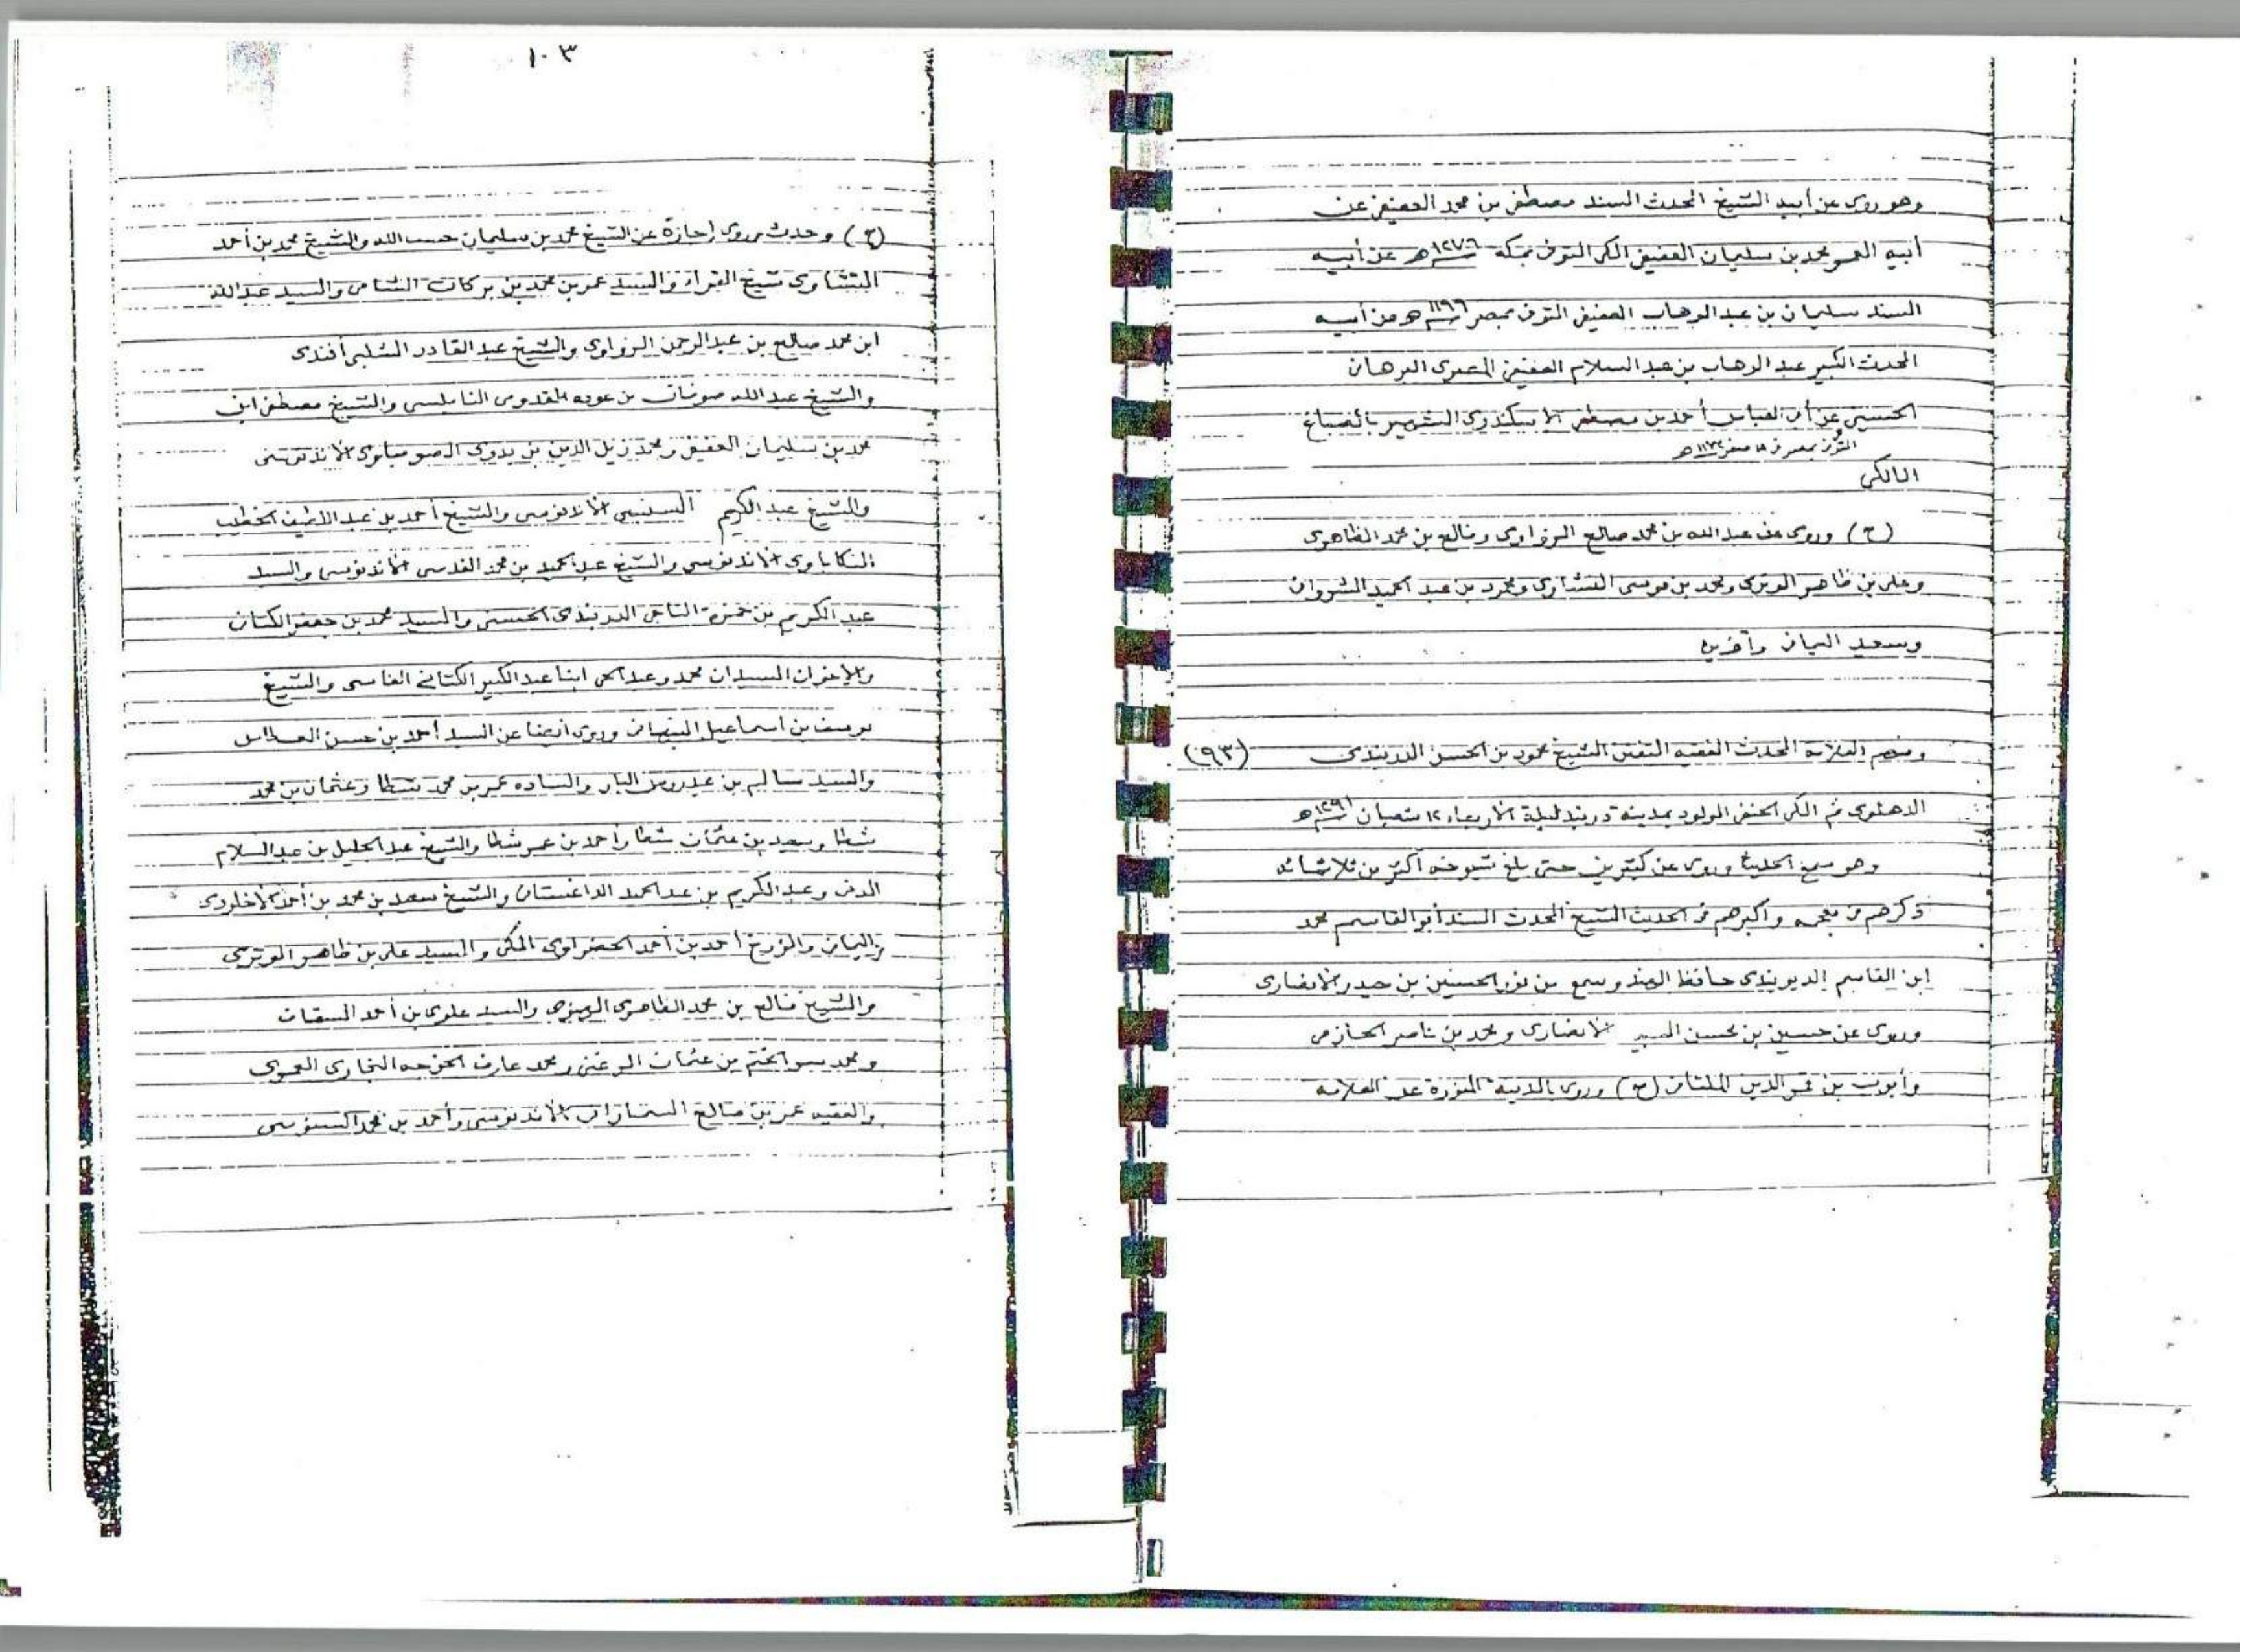 وهو روى عن أبيه الشيخ المحدث المسند مصطفى بن محمد العفيفى عن
أبيه المعمر محمد بن سليمان العفيفى المكى المتوفى بمكة ١٢٧٦ هـ عن أبيه
المسند سليمان بن عبد الوهاب العفيفى المتوفى بمصر ١١٩٦ هـ عن أبيه
المحدث الكبير عبد الوهاب بن عبد السلام العفيفى المصرى البرهانى
الحسينى عن أبى العباس أحمد بن مصطفى الاسكندرى الشهير بالصباغ
المتوفى بمصر فى ١٨ صفر هـ
المالكى
(ح) وروى عن عبد الله بن محمد صالح الزواوى وفالح بن محمد الظاهرى
وعلى بن ظاهر الوترى ومحمد بن موسى المنشاوى ومحمود بن عبد الحميد الشروانى
وسعيد اليمانى وآخرين
ومنهم العلامة المحدث الفقيه المتفنن الشيخ محمود بن الحسن الدربندى (٩٣)
الدهلوى ثم المكى الحنفى المولود بمدينة دربند ليلة الأربعاء ١٢ شعبان ١٢٩١ هـ
وهو سمع الحديث وروى عن كثيرين حتى بلغ شيوخه أكثر من ثلاثمائة
ذكرهم فى معجمه وأكبرهم فى الحديث الشيخ المحدث المسند أبو القاسم محمد
ابن القاسم الديوبندى حافظ الهند وسمع من نور الحسنين بن حيدر الانصارى
وروى عن حسين بن محسن الانصارى ومحمد بن ناصر الحازمى
وأيوب بن قمر الدين الملتانى (ح) وروى بالمدينة المنورة عن العلامة
١٠٣
(ح) وحدث وروى إجازة عن الشيخ محمد بن سليمان حسب الله والشيخ محمد بن أحمد
المنشاوى شيخ القراء والسيد عمر بن محمد بن بركات الشامى والسيد عبد الله
ابن محمد صالح بن عبد الرحمن الزواوى والشيخ عبد القادر الشلبى أفندى
والشيخ عبد الله صوفان بن عوده القدومى النابلسى والشيخ مصطفى ابن
محمد بن سليمان العفيفى ومحمد زين الدين بن بدوى الصومباوى الاندنوسى
والشيخ عبد الكريم السنبسى الأندنوسى والشيخ أحمد بن عبد اللطيف الخطيب
المنكاباوى الاندنوسى والشيخ عبد الحميد بن محمد القدسى الاندنوسى والسيد
عبد الكريم بن حمزة الناجى الدربندى الحسنى والسيد محمد بن جعفر الكتانى
والاخوان السيدان محمد وعبد الحى ابنا عبد الكبير الكتانى الفاسى والشيخ
يوسف بن اسماعيل النبهانى وروى أيضا عن السيد أحمد بن حسن العطاس
والسيد سالم بن عيدروس البار والساده عمر بن محمد شطا وعثمان بن محمد
شطا وسعيد بن عثمان شطا وأحمد بن عمر شطا والشيخ عبد الجليل بن عبد السلام
المدنى وعبد الكريم بن عبد الحميد الداغستانى والشيخ سعيد بن محمد بن أحمد
اليمانى والمؤرخ أحمد بن أحمد الحضراوى المكى والسيد على بن ظاهر الوترى
والشيخ فالح بن محمد الظاهرى المهنوى والسيد علوى بن أحمد السقاف
ومحمد سر الختم بن عثمان المرغنى ومحمد عارف الخوجه البخارى العمرى
والفقيه عمر بن صالح السمارانى الأندنوسى وأحمد بن محمد السنوسى